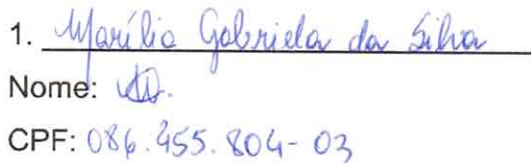 1. Marília Gabriela da Silva
Nome:
CPF: 086.455.804-03